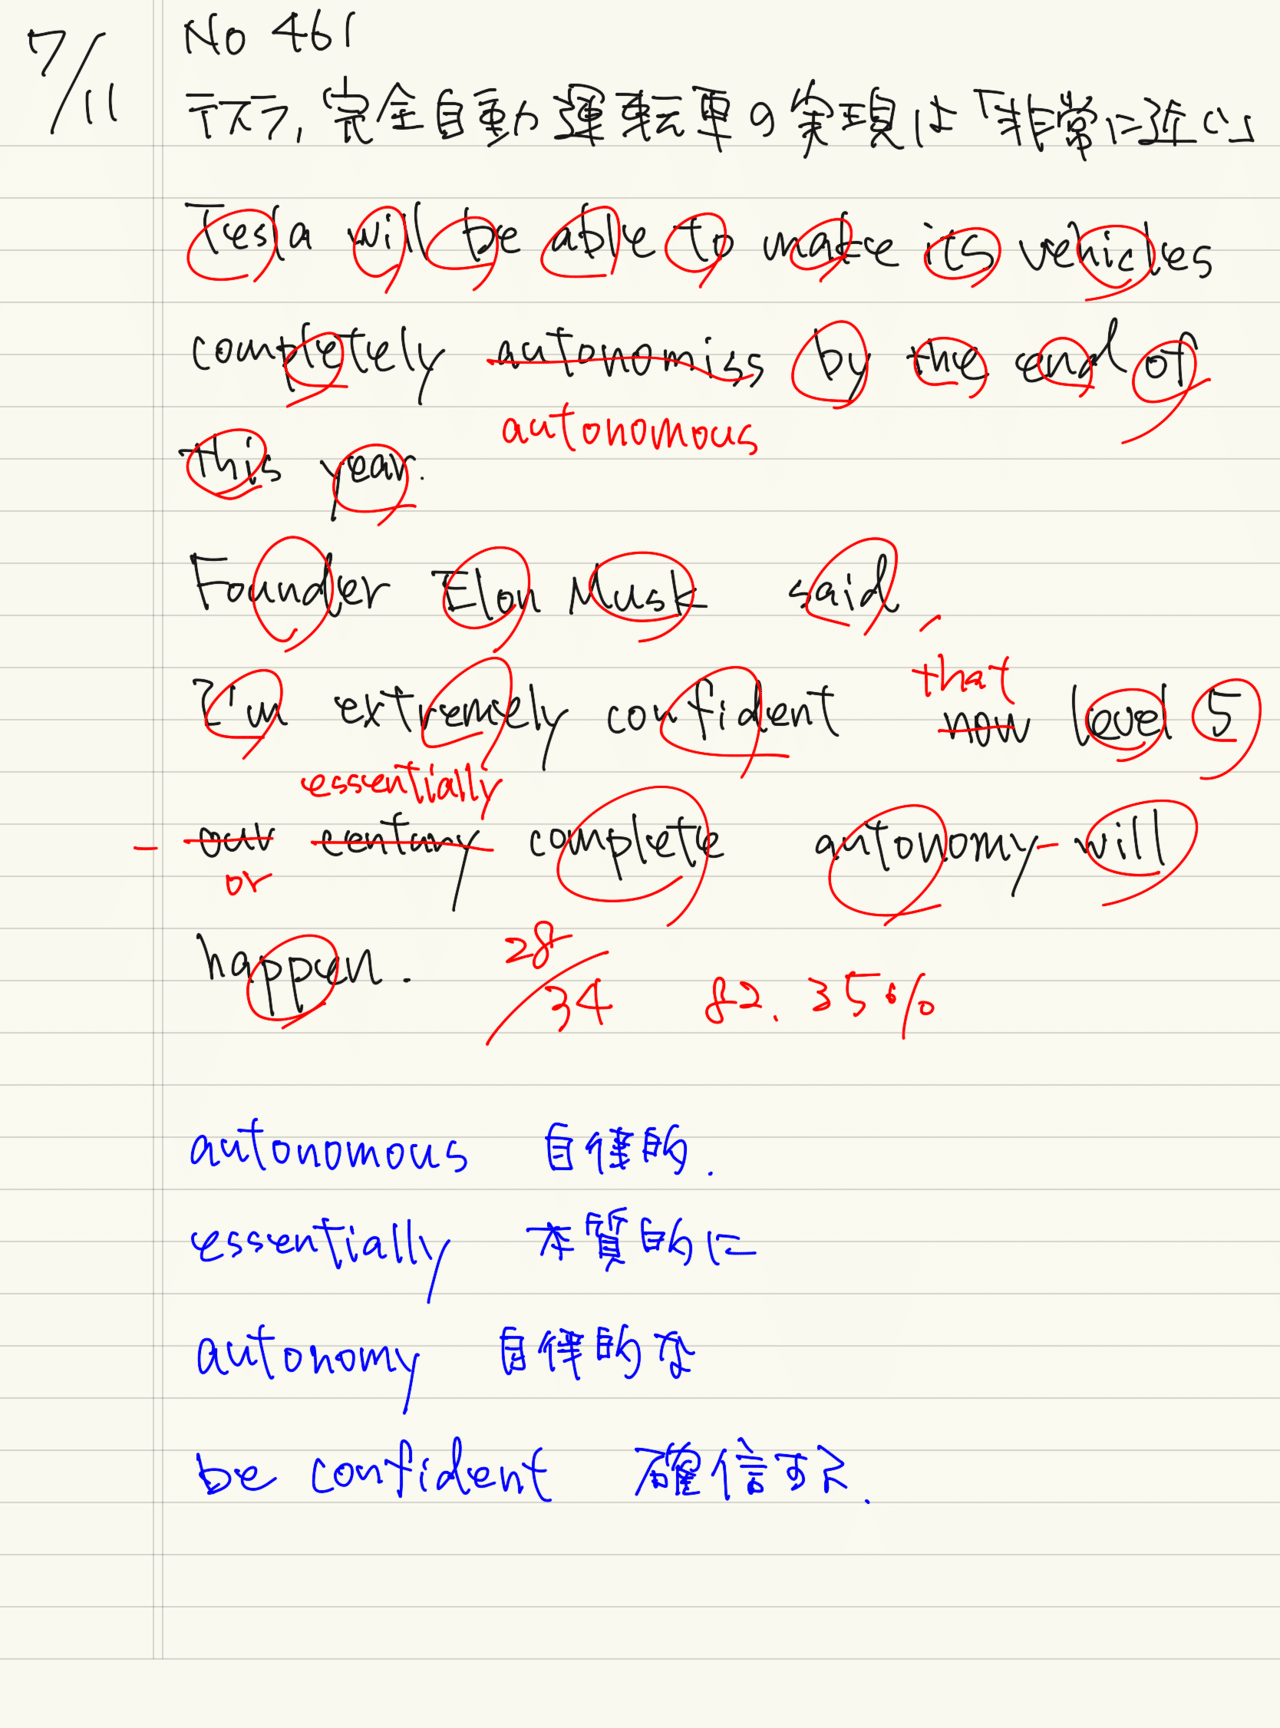 7/11
No 461
テスラ, 完全自動運転車の実現は「非常に近い」
Tesla will be able to make its vehicles
completely autonomiss by the end of
autonomous
this year.
Founder Elon Musk said,
that
I'm extremely confident now level 5
essentially
- our century complete autonomy - will
or
happen.
28/34 82.35%
autonomous 自律的.
essentially 本質的に
autonomy 自律的な
be confident 確信する.